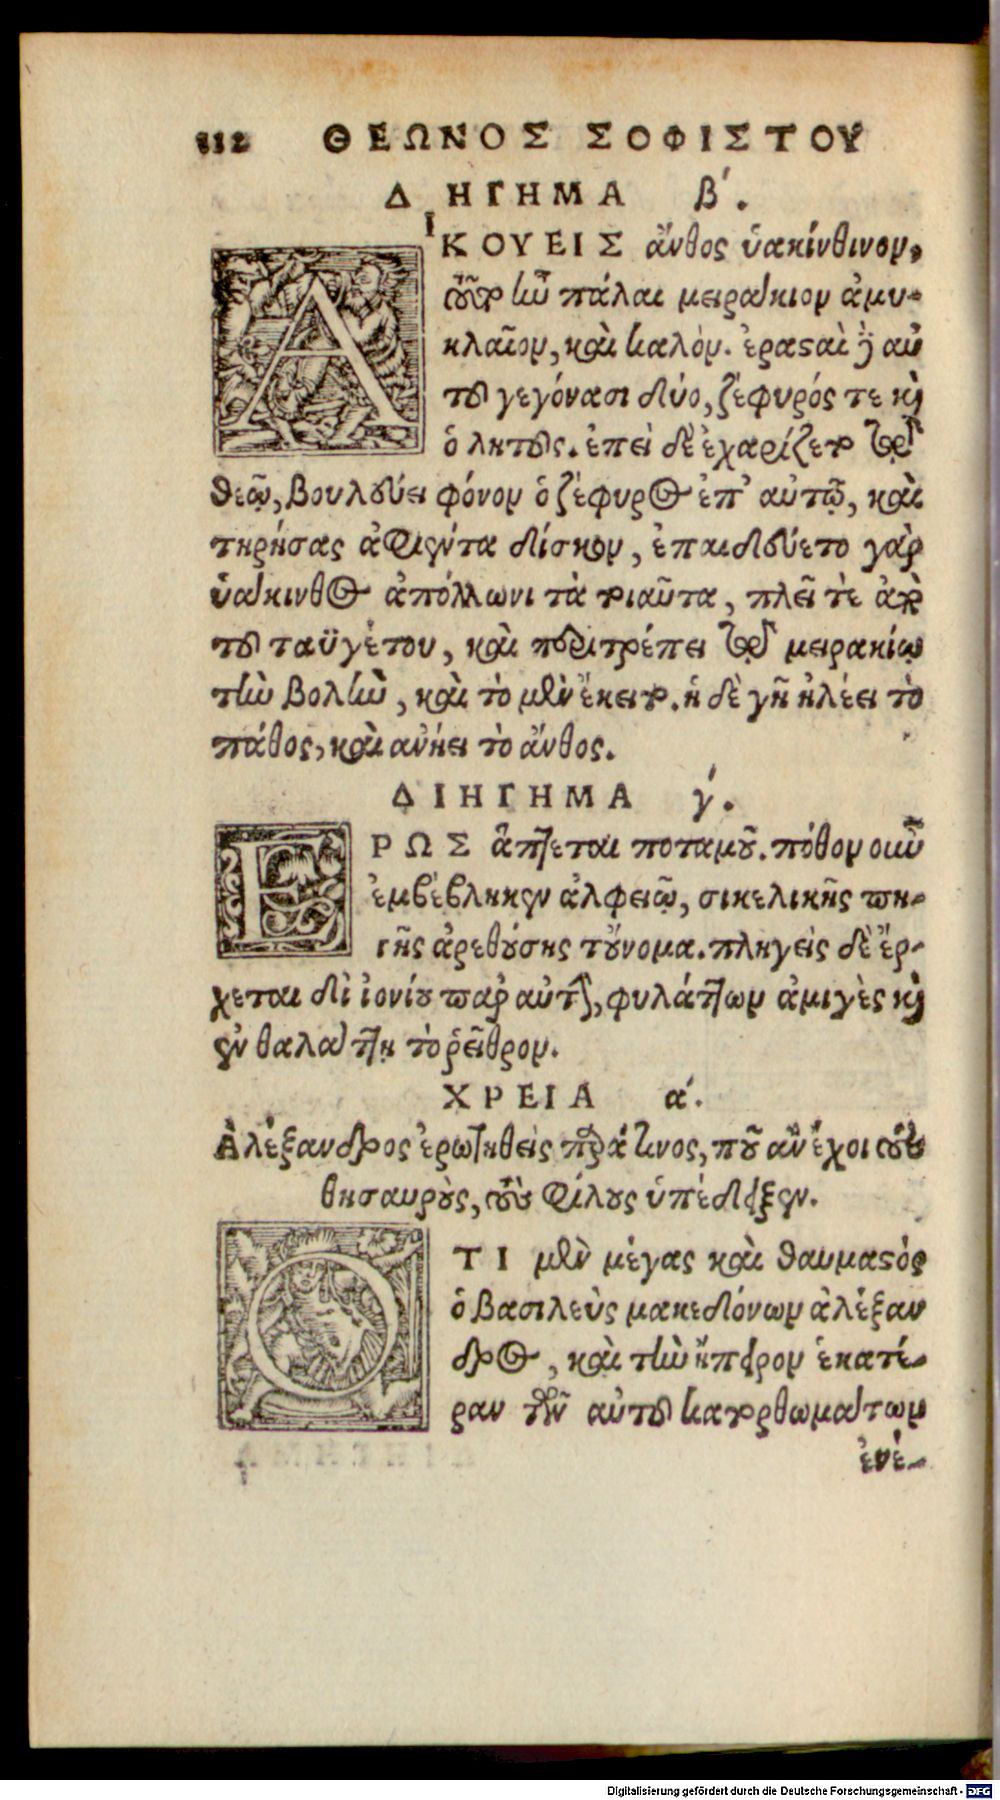 112 ΘΕΩΝΟΣ ΣΟΦΙΣΤΟΥ
ΔΙΗΓΗΜΑ β΄.
ΑΚΟΥΕΙΣ ἄνθος ὑακίνθινον,
τοῦτο ἦν πάλαι μειράκιον ἀμυ-
κλαῖον, καὶ καλόν. ἐρασταὶ δ' αὐ
τοῦ γεγόνασι δύο, ζέφυρός τε καὶ
ὁ λητοῦς. ἐπεὶ δὲ ἐχαρίζετο τῷ
θεῷ, βουλεύει φόνον ὁ ζέφυρος ἐπ' αὐτῷ, καὶ
τηρήσας ἀφιέντα δίσκον, ἐπαιδεύετο γὰρ
ὑάκινθος ἀπόλλωνι τὰ τοιαῦτα, πλεῖ τε ἀπὸ
τοῦ ταϋγέτου, καὶ περιτρέπει τῷ μειρακίῳ
τὴν βολὴν, καὶ τὸ μὲν ἔκειτο. ἡ δὲ γῆ ἠλέει τὸ
πάθος, καὶ ἀνήει τὸ ἄνθος.
ΔΙΗΓΗΜΑ γ΄.
ΕΡΩΣ ἅπτεται ποταμοῦ. πόθον οὖν
ἐμβέβληκεν ἀλφειῷ, σικελικῆς πη-
γῆς ἀρεθούσης τοὔνομα. πληγεὶς δὲ ἔρ-
χεται δι' ἰονίου παρ' αὐτὴν, φυλάττων ἀμιγὲς καὶ
ἐν θαλάττῃ τὸ ῥεῖθρον.
ΧΡΕΙΑ α΄.
Ἀλέξανδρος ἐρωτηθεὶς παρά τινος, ποῦ ἂν ἔχοι τοὺς
θησαυροὺς, τοὺς φίλους ὑπέδειξεν.
ΟΤΙ μὲν μέγας καὶ θαυμαστὸς
ὁ βασιλεὺς μακεδόνων ἀλέξαν
δρος, καὶ τὴν ἤπειρον ἑκατέ-
ραν τῶν αὐτοῦ κατορθωμάτων
ἐνέ-
Digitalisierung gefördert durch die Deutsche Forschungsgemeinschaft - DFG